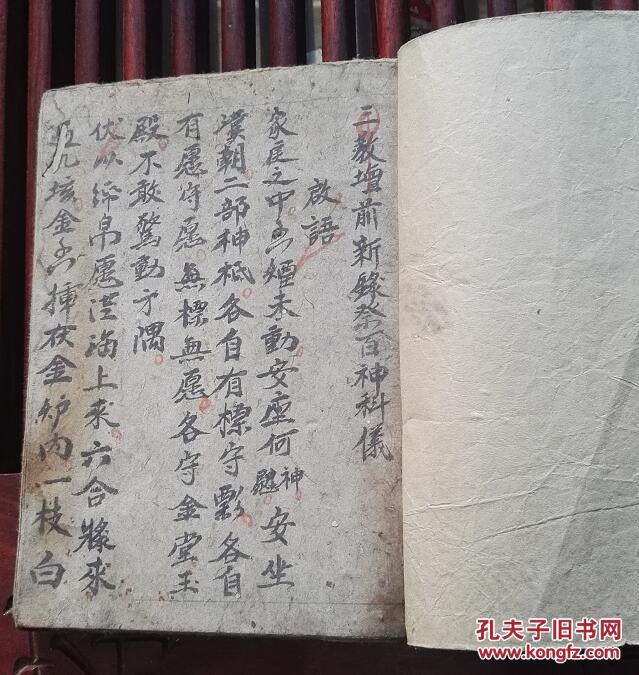 三教壇前新錄祭百神科儀
啟語
家庭之中香烟未動安座何神慰安坐
漢朝二部神袛各自有標守票各自
有愿守愿無標無愿各守金堂玉
殿不敢驚動方隅
伏以綿帛愿洪海上求六合將來
爐內一枝白
孔夫子旧书网
www.kongfz.com